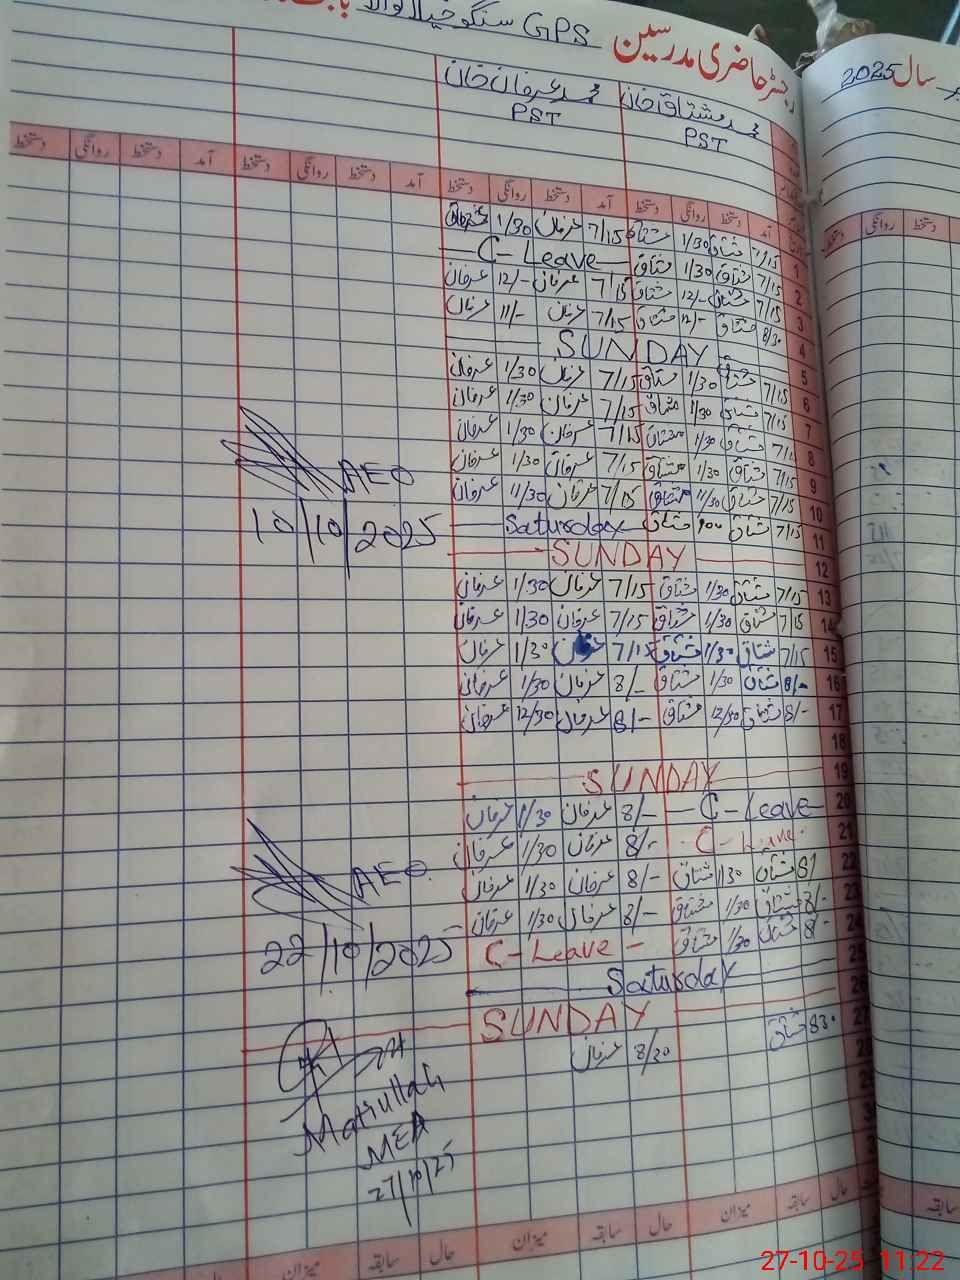 رجسٹر حاضری مدرسین GPS
سال 2025
محمد مشتاق خان محمد عرفان خان
PST PST
آمد دستخط روانگی دستخط آمد دستخط روانگی دستخط آمد دستخط روانگی دستخط آمد دستخط روانگی دستخط
1 7/15 مشتاق 1/30 مشتاق 7/15 عرفان 1/30 عرفان
2 7/15 مشتاق 1/30 مشتاق C-Leave
3 7/15 مشتاق 12/- مشتاق 7/15 عرفان 12/- عرفان
4 8/30 مشتاق 12/- مشتاق 7/15 عرفان 11/- عرفان
5 SUNDAY
6 7/15 مشتاق 1/30 مشتاق 7/15 عرفان 1/30 عرفان
7 7/15 مشتاق 1/30 مشتاق 7/15 عرفان 1/30 عرفان
8 مشتاق 1/30 مشتاق 7/15 عرفان 1/30 عرفان
9 7/15 مشتاق 1/30 مشتاق 7/15 عرفان 1/30 عرفان
10 7/15 مشتاق 11/30 مشتاق 7/15 عرفان 11/30 عرفان
AEO
10/10/2025
11 7/15 مشتاق مشتاق Saturday
12 SUNDAY
13 7/15 مشتاق 1/30 مشتاق 7/15 عرفان 1/30 عرفان
14 7/15 مشتاق 1/30 مشتاق 7/15 عرفان 1/30 عرفان
15 7/15 مشتاق 1/30 مشتاق 7/15 عرفان 1/30 عرفان
16 8/- مشتاق 1/30 مشتاق 8/- عرفان 1/30 عرفان
17 8/- مشتاق 12/30 مشتاق 8/- عرفان 12/30 عرفان
18
19 SUNDAY
20 C-Leave 8/- عرفان 1/30 عرفان
21 C-Leave 8/- عرفان 1/30 عرفان
22 مشتاق 1/30 مشتاق 8/- عرفان 1/30 عرفان
AEO
22/10/2025
23 8/- مشتاق 1/30 مشتاق 8/- عرفان 1/30 عرفان
24 8/- مشتاق 1/30 مشتاق C-Leave
25 Saturday
26 SUNDAY
27 830 مشتاق 8/30 عرفان
28
Matiullah
MEA
27/10/25
حال سابقہ میزان حال سابقہ میزان حال سابقہ میزان حال
سابقہ
27-10-25 11:22